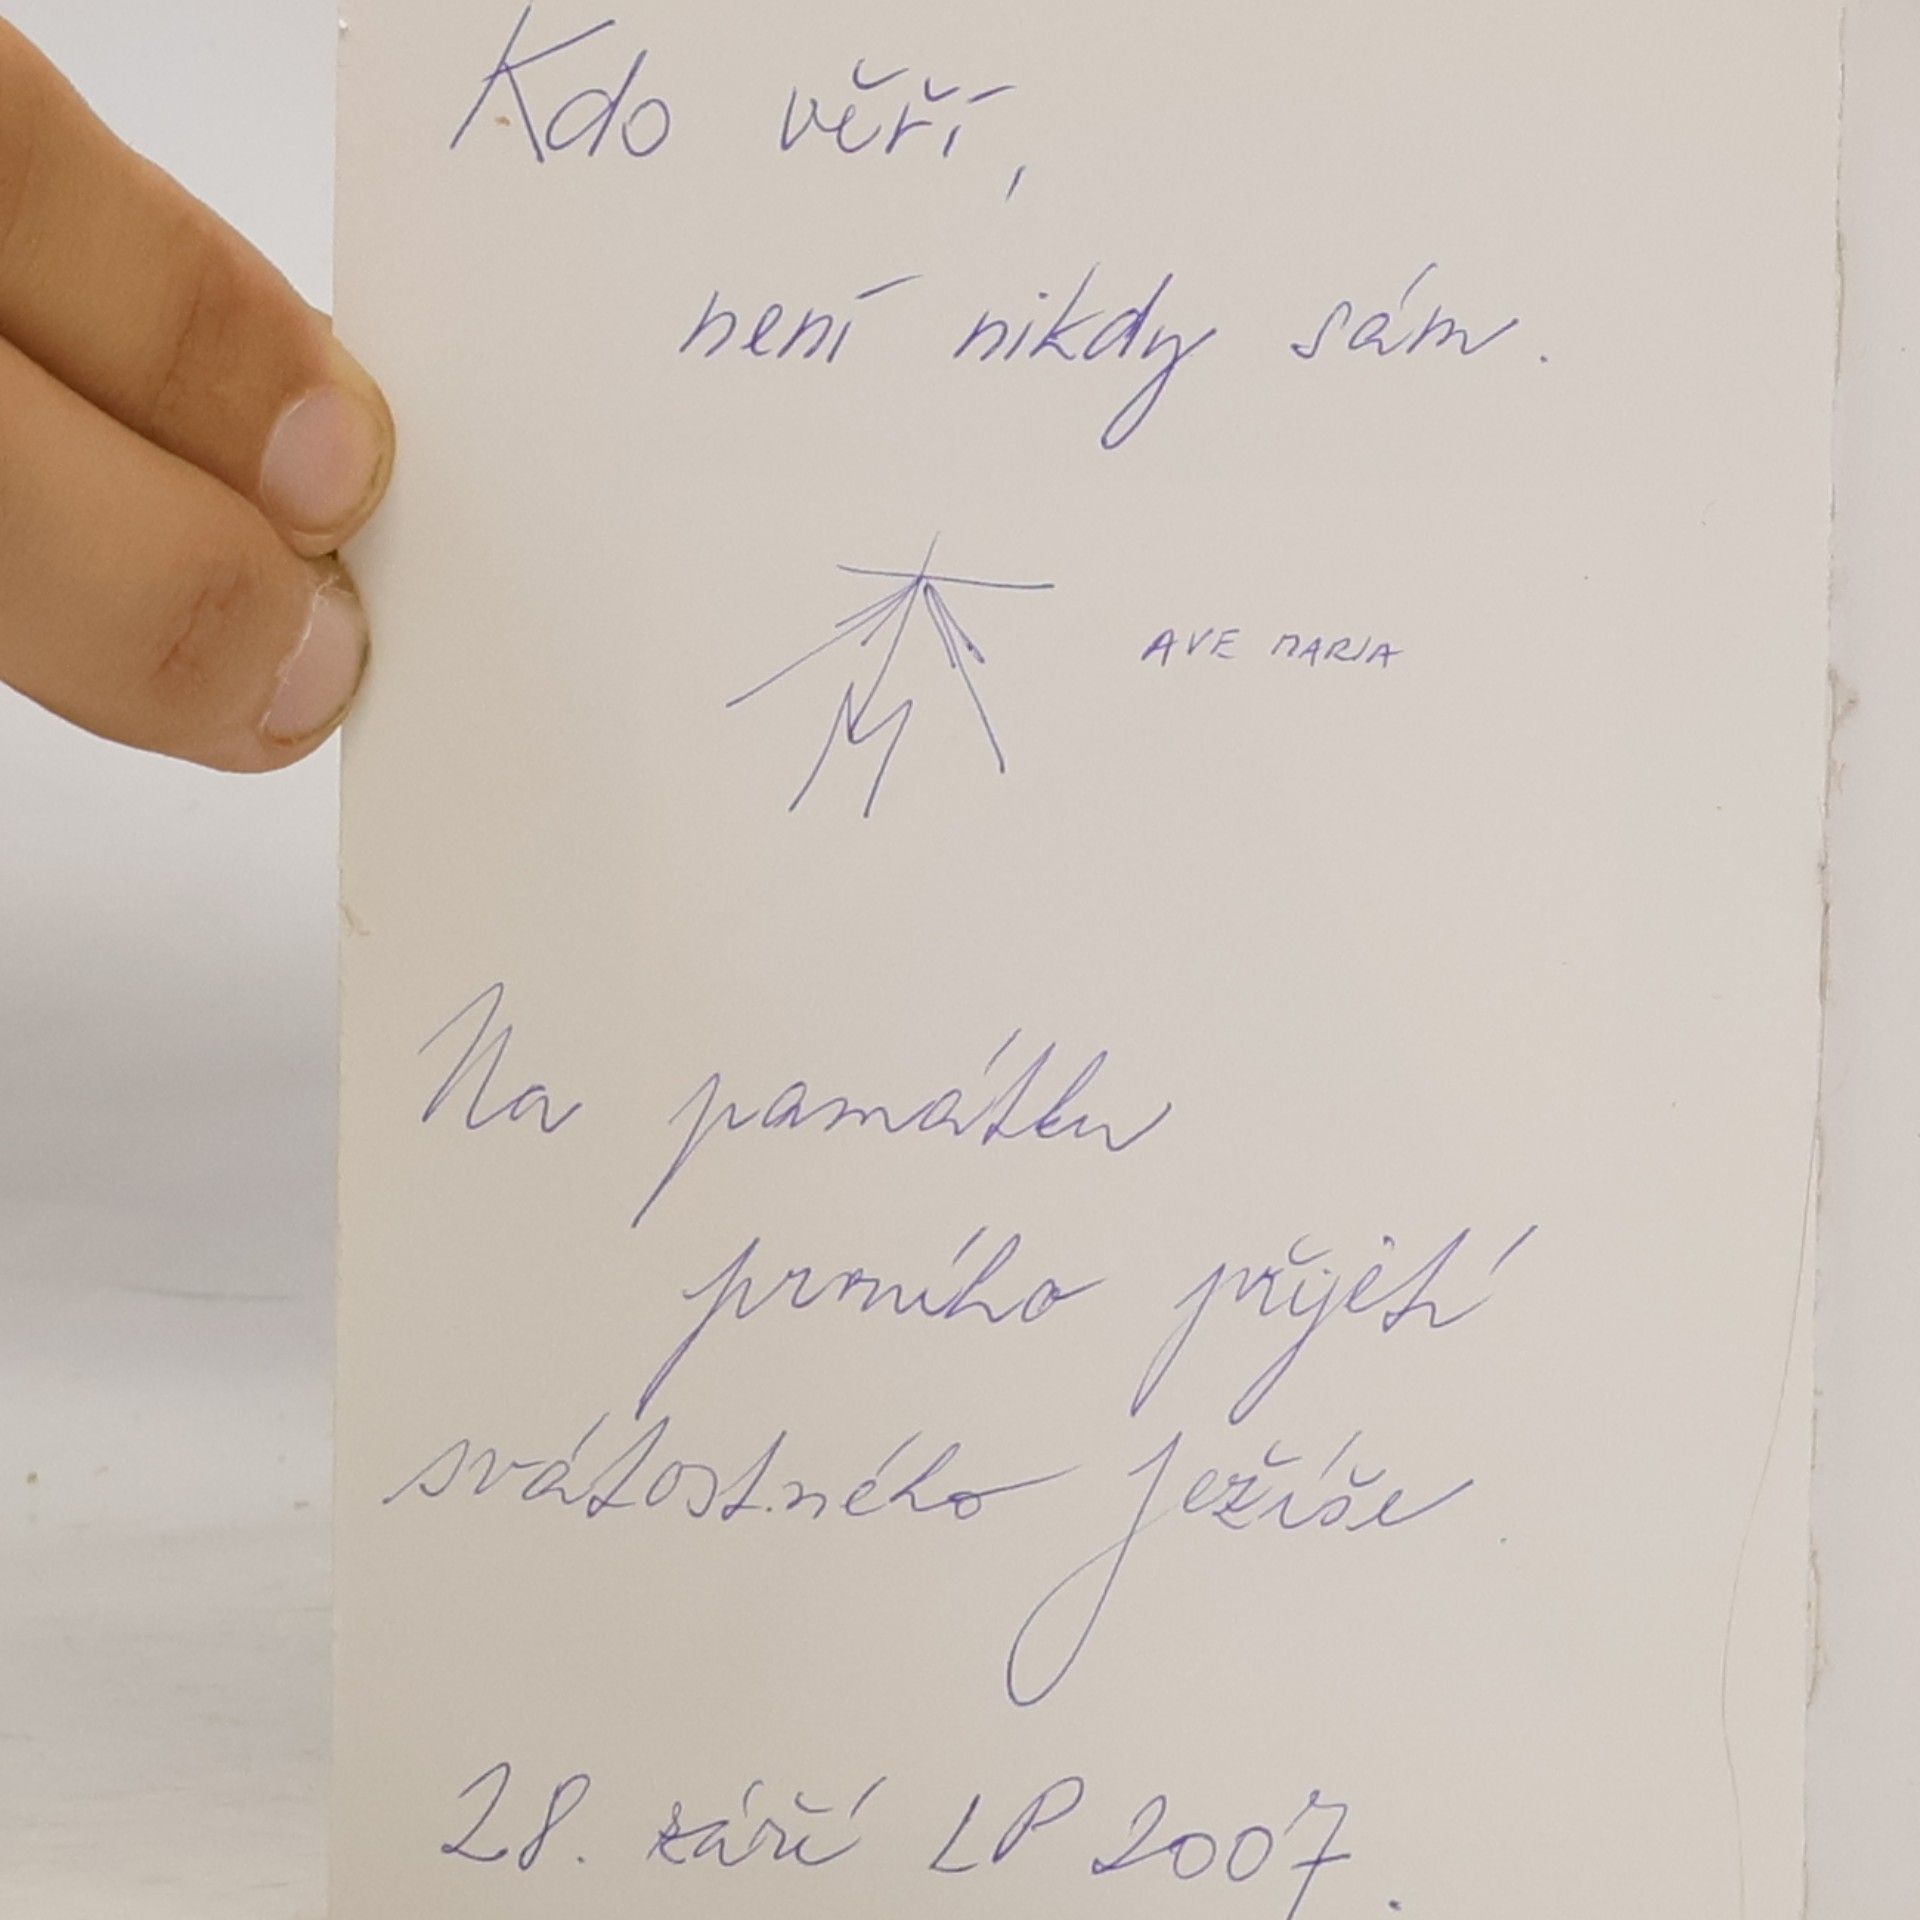 Kdo věří,
není nikdy sám.
M
AVE MARIA
Na památku
prvního přijetí
svátostného Ježíše.
28. září LP 2007.